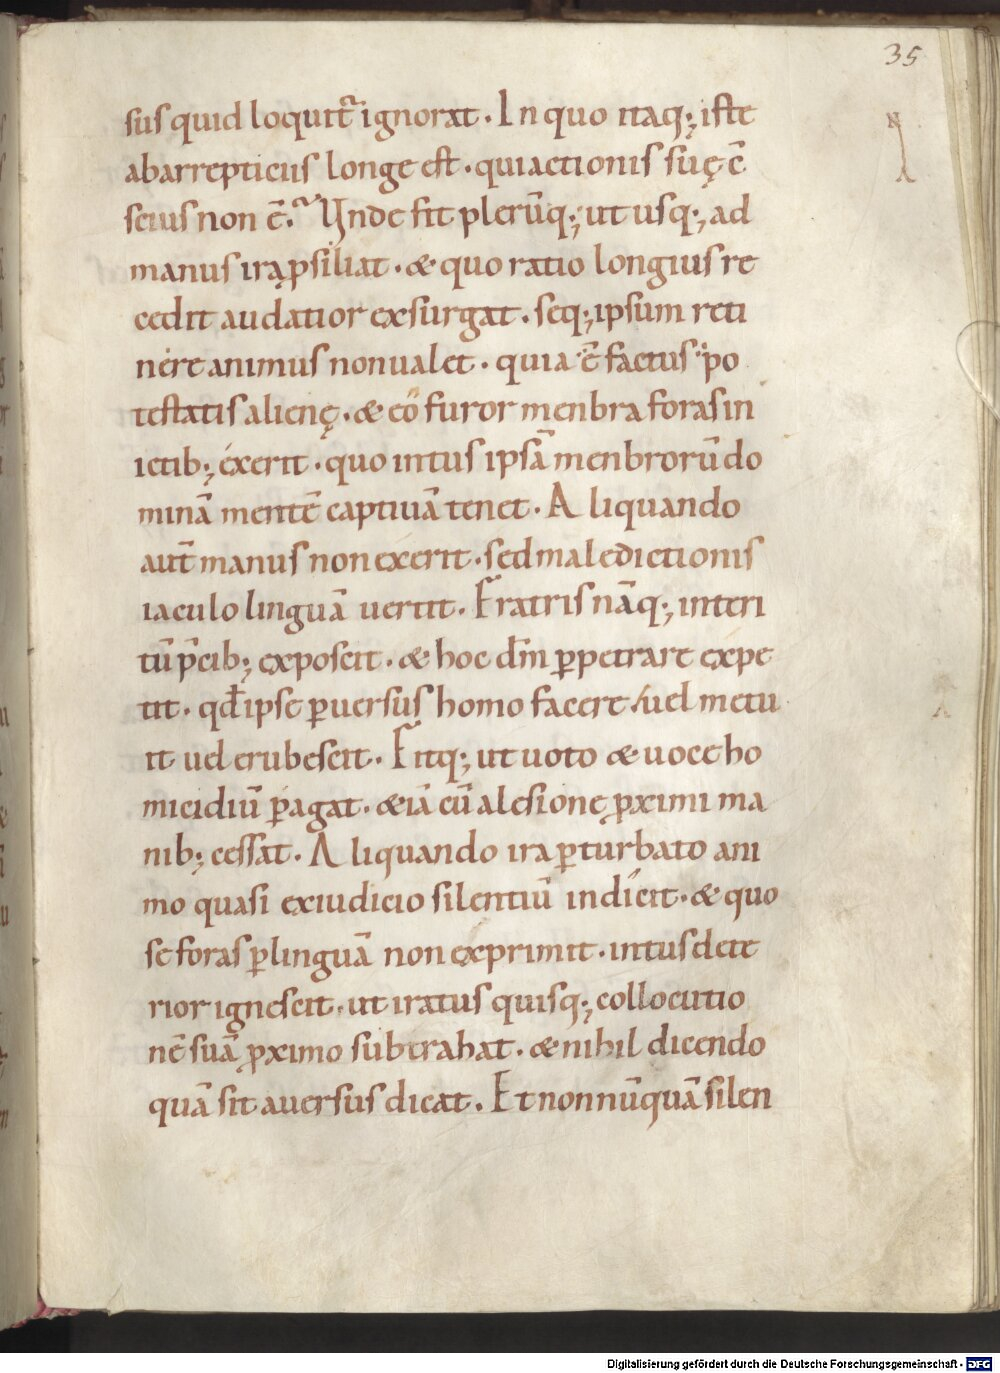 35
sus quid loquit᷑ ignorat. In quo itaq; iste
abarrepticiis longe est. qui actionis suę ē
scius non ē. Unde fit plerūq; ut usq; ad
manus ira ꝓsiliat. & quo ratio longius re
cedit audatior exsurgat. seq; ipsum reti
nere animus non ualet. quia ē factus po
testatis alienę. & eo furor menbra foras in
ictib; exerit. quo intus ipsā menbrorū do
minā mentē captiuā tenet. Aliquando
aut̄ manus non exerit. sed maledictionis
iaculo linguā uertit. Fratris nāq; interi
tū p̄cib; exposcit. & hoc dm̄ ꝑpetrare expe
tit. qđ ipse ꝑuersus homo facere uel metu
it uel erubescit. Fitq; ut uoto & uoce ho
micidiū ꝑagat. & iā cū a lesione ꝓximi ma
nib; cessat. Aliquando ira ꝑturbato ani
mo quasi ex iudicio silentiū indicit. & quo
se foras ꝑ linguā non exprimit. intus dete
rior ignescit. ut iratus quisq; collocutio
nē suā ꝓximo subtrahat. & nihil dicendo
quā sit auersus dicat. Et nonnūquā silen
Digitalisierung gefördert durch die Deutsche Forschungsgemeinschaft - DFG